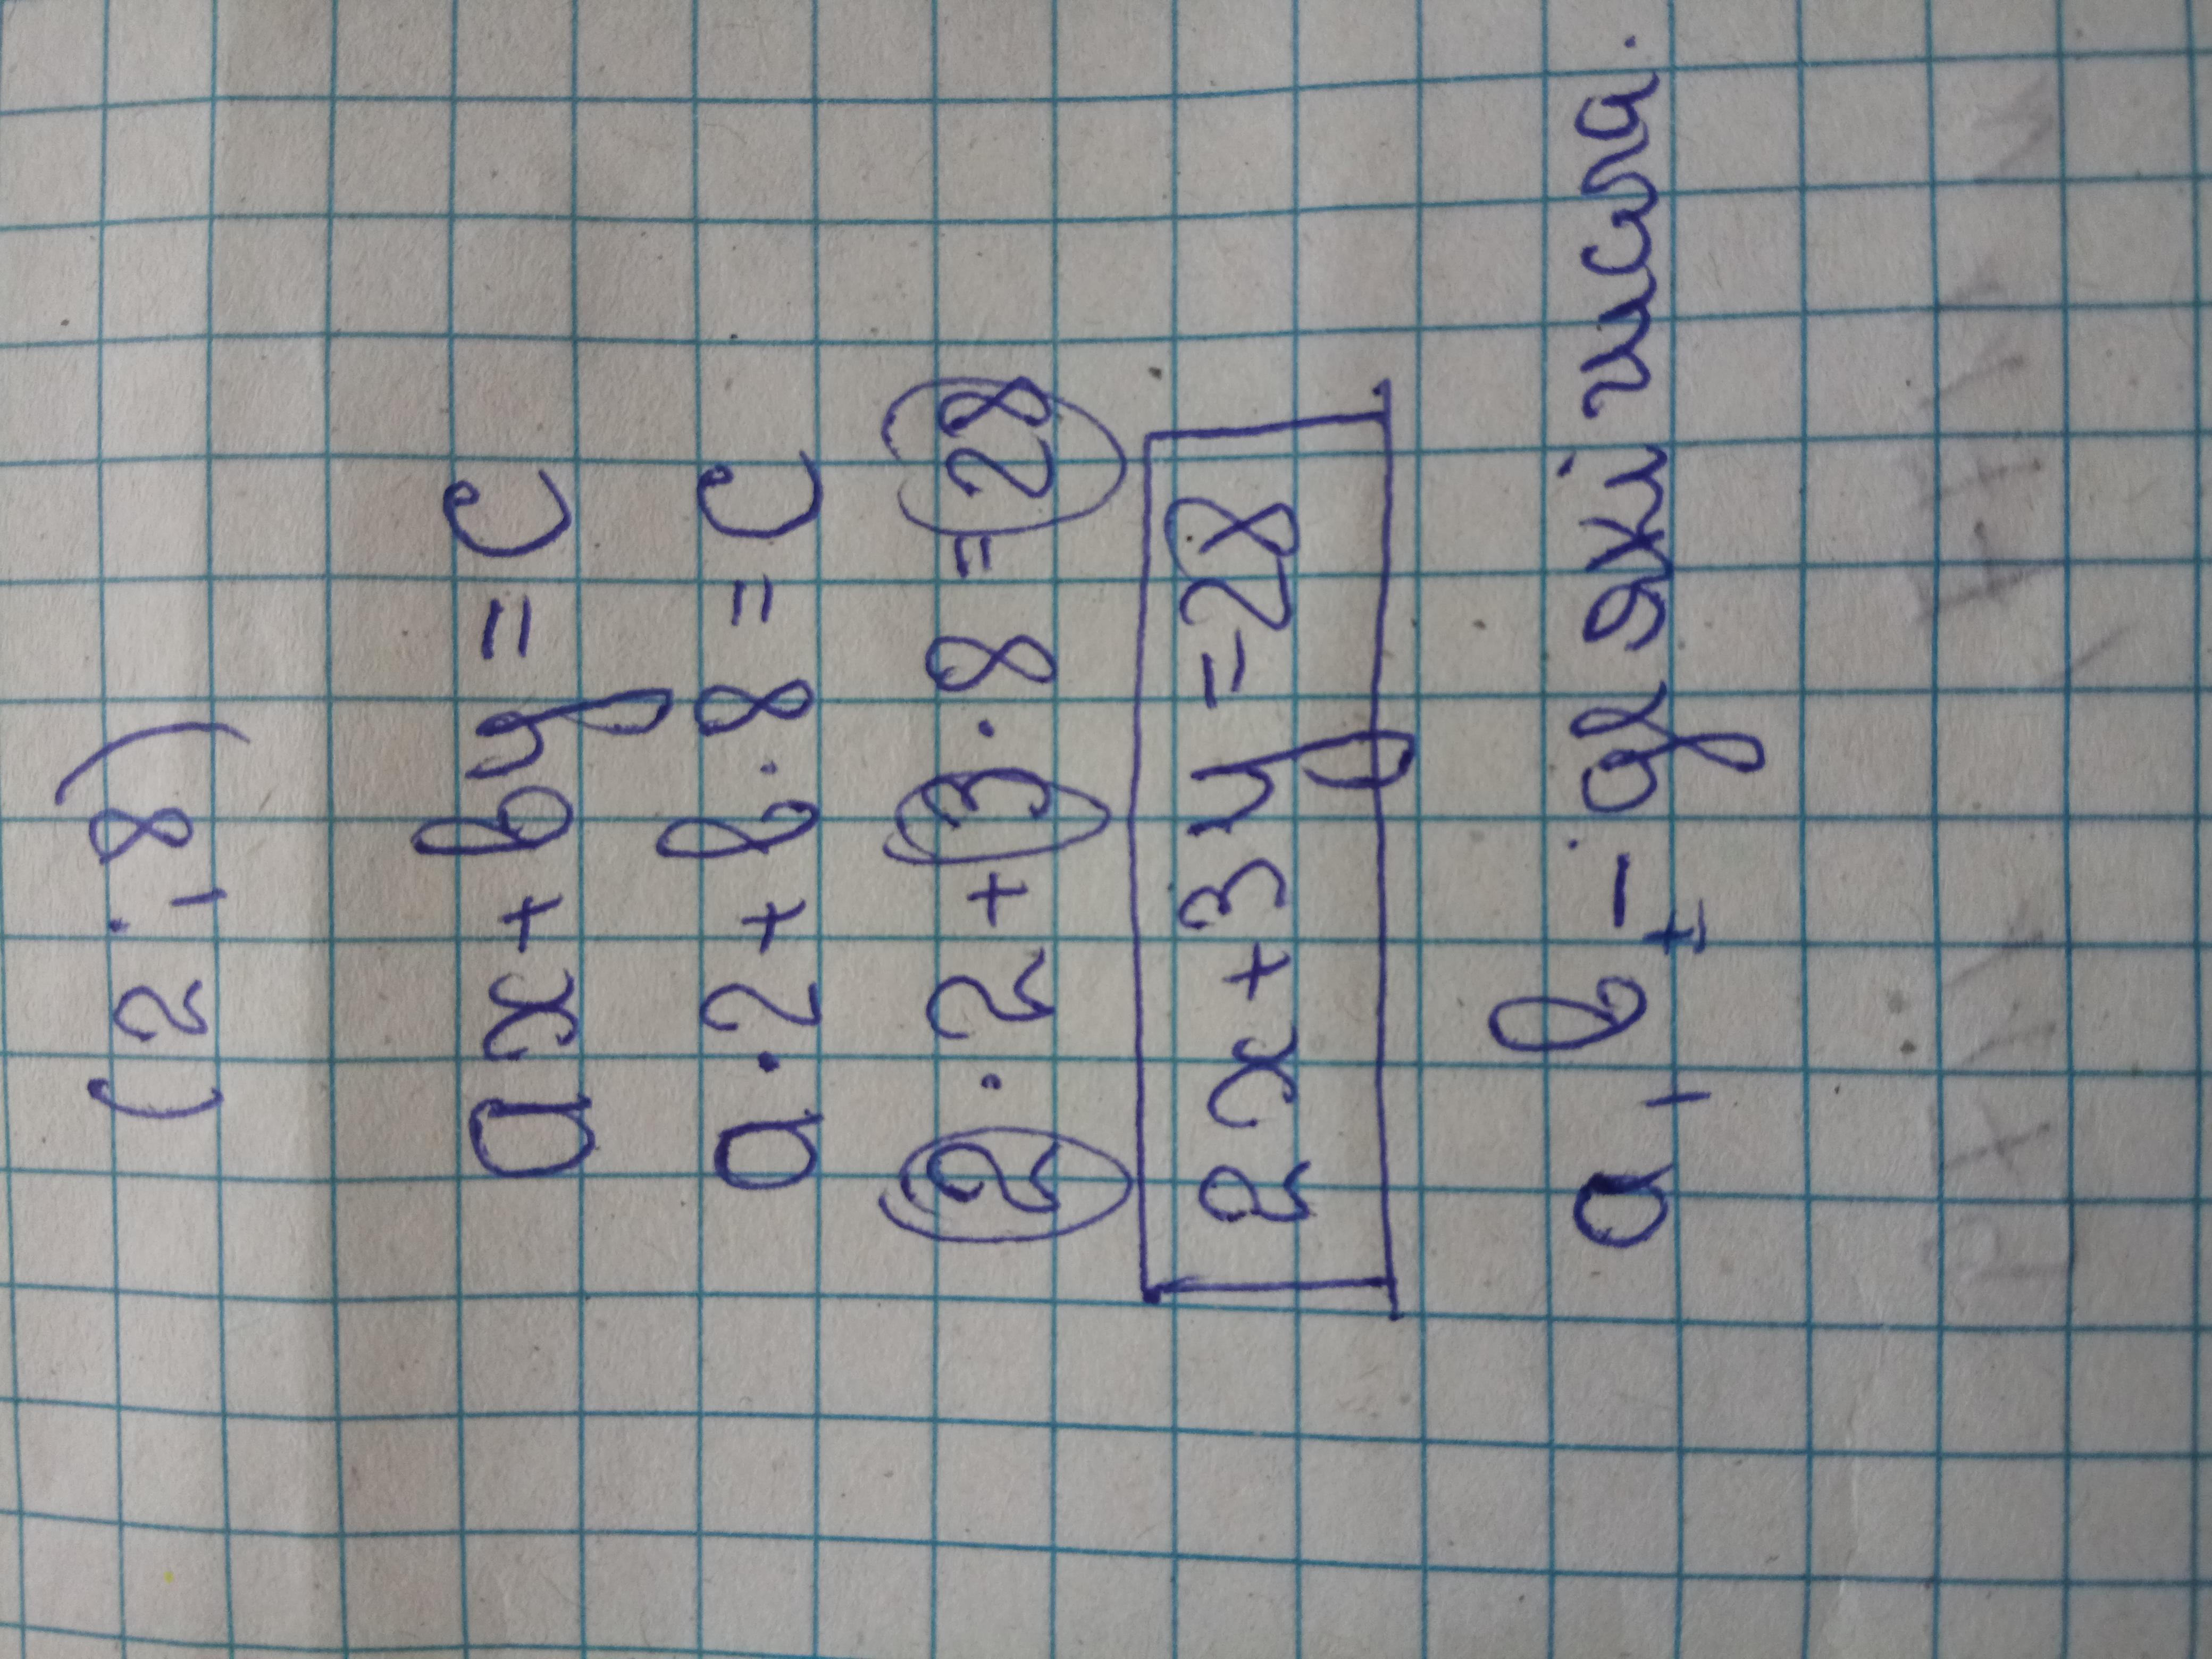 (2 ; 8)
ax + by = c
a · 2 + b · 8 = c
2 · 2 + 3 · 8 = 28
2x + 3y = 28
a, b - які числа.